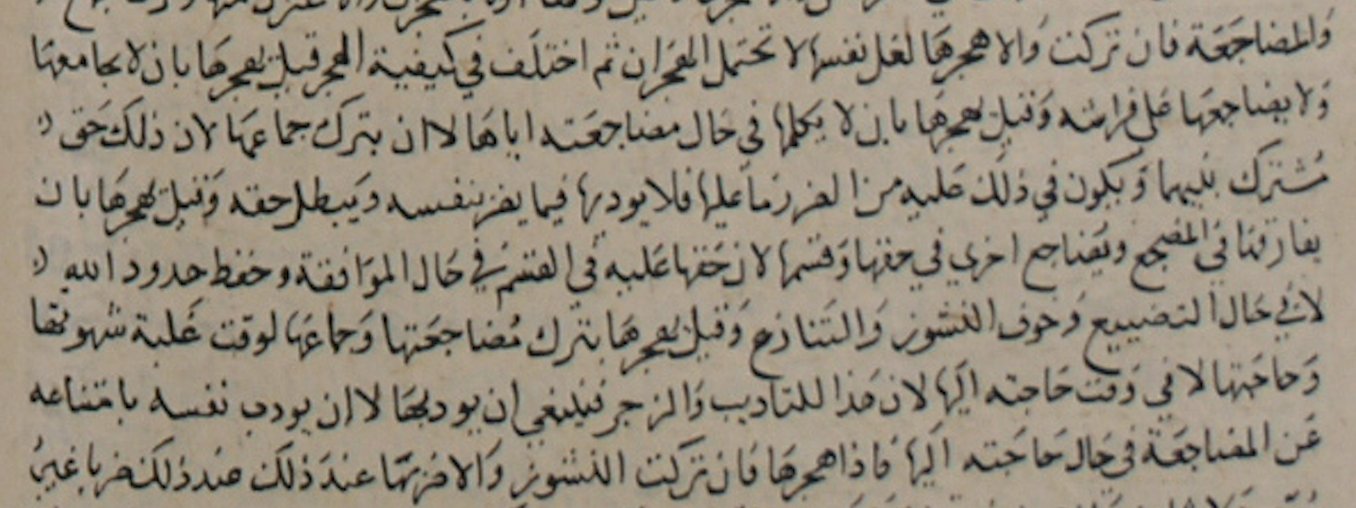 والمضاجعة فان تركت والا هجرها لعل نفسها لا تحتمل الهجران ثم اختلف في كيفية الهجر قيل يهجرها بان لا يجامعها
ولا يضاجعها على فراشه وقيل يهجرها بان لا يكلمها في حال مضاجعته اياها لا ان يترك جماعها لان ذلك حق
مشترك بينهما ويكون في ذلك عليه من الضرر ما عليها فلا يوديها فيما يضر بنفسه ويبطل حقه وقيل يهجرها بان
يفارقها في المضجع ويضاجع اخرى في حقها وقسمها لان حقها عليه في القسم في حال الموافقة وحفظ حدود الله
لا في حال التضييع وخوف النشوز والتنازع وقيل يهجرها بترك مضاجعتها وجماعها لوقت غلبة شهوتها
وحاجتها لا في وقت حاجته اليها لان هذا للتاديب والزجر فينبغي ان يودبها لا ان يودب نفسه بامتناعه
عن المضاجعة في حال حاجته اليها فاذا هجرها فان تركت النشوز والا ضربها عند ذلك ضربا غير